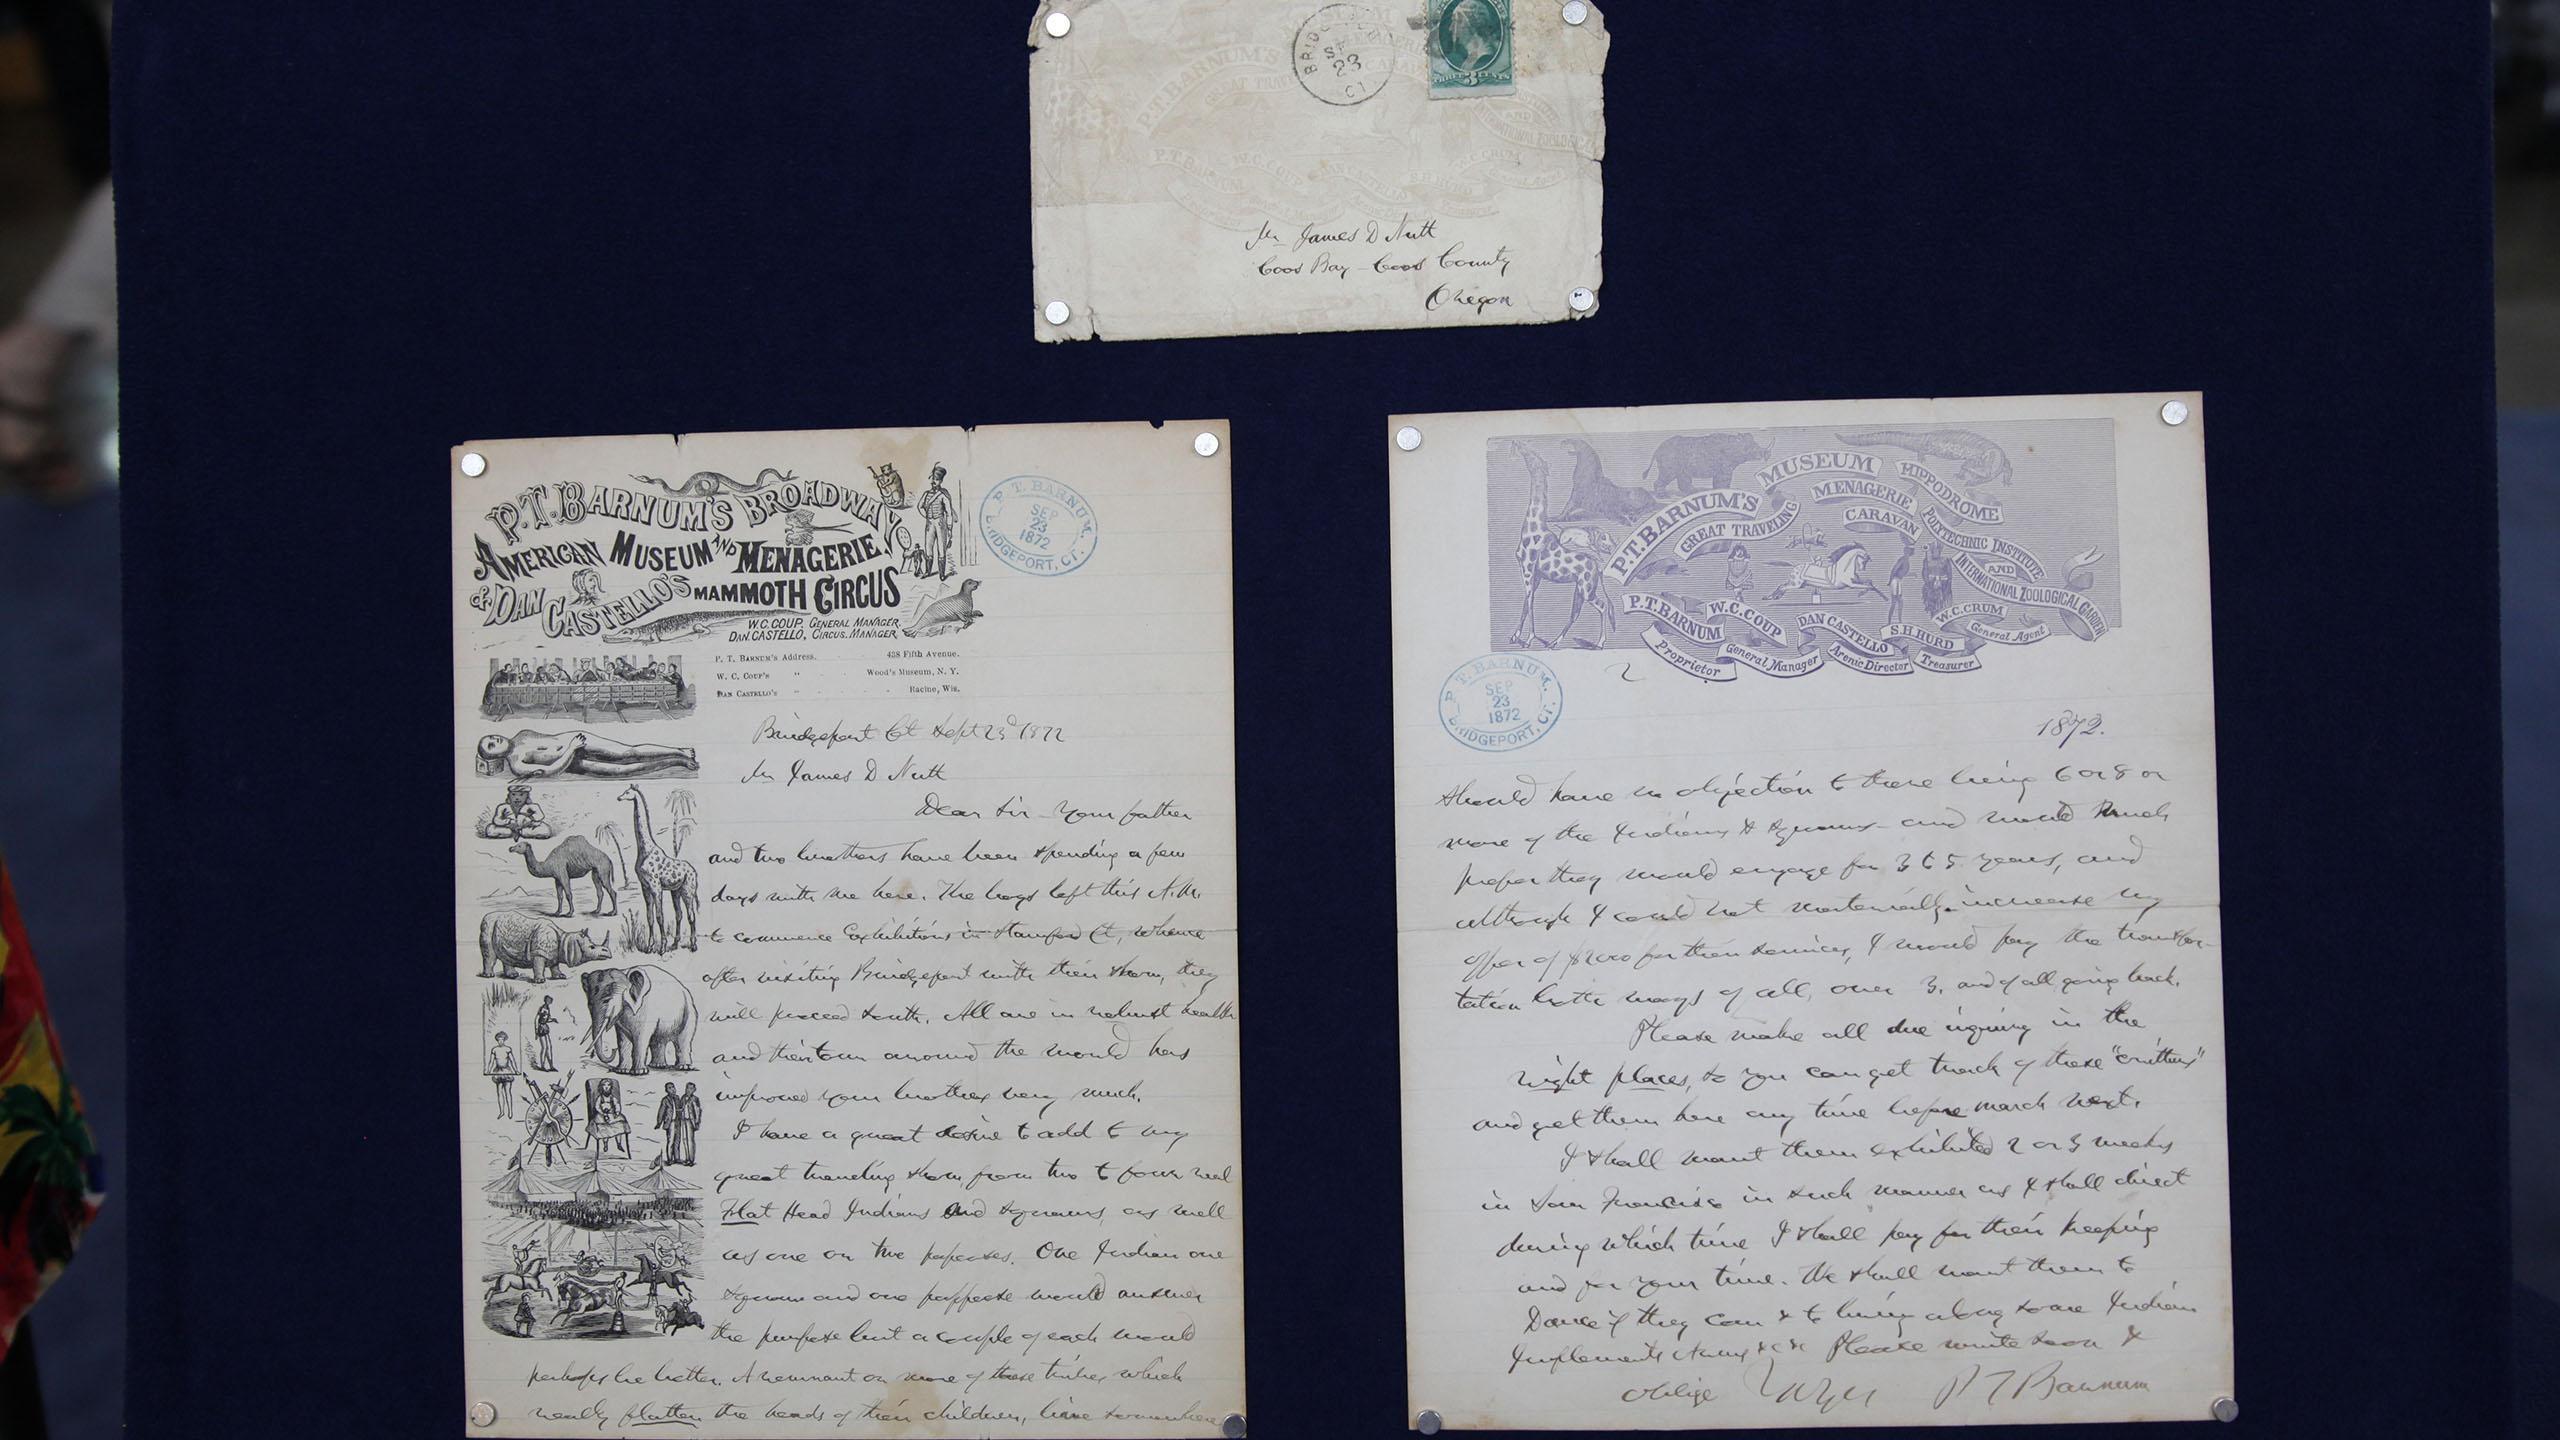 BRIDGEPORT
SEP
23
CT
THREE 3 CENTS
P.T. BARNUM'S
GREAT
AND
INTERNATIONAL ZOOLOGICAL
P.T. BARNUM W.C. COUP DAN CASTELLO S.H. HURD W.C. CRUM
Mr James D Nutt
Coos Bay - Coos County
Oregon
P.T. BARNUM'S BROADWAY
AMERICAN MUSEUM AND MENAGERIE
& DAN CASTELLO'S MAMMOTH CIRCUS
W.C. COUP, GENERAL MANAGER.
DAN. CASTELLO, CIRCUS MANAGER.
P. T. BARNUM.
SEP
23
1872
BRIDGEPORT, CT.
P. T. BARNUM'S Address. 438 Fifth Avenue.
W. C. COUP'S " Wood's Museum, N. Y.
DAN CASTELLO'S " Racine, Wis.
Bridgeport Ct Sept 23d 1872
Mr James D Nutt
Dear Sir - Your father
and two brothers have been spending a few
days with me here. The boys left this A.M.
to commence Exhibitions in Stamford Ct, whence
after visiting Bridgeport with their show, they
will proceed South. All are in robust health
and their tour around the world has
improved your brothers very much.
I have a great desire to add to my
great traveling show, from two to four real
Flat Head Indians and Squaws, as well
as one or two papooses. One Indian one
squaw and one pappoose would answer
the purpose but a couple of each would
perhaps be better. A remnant or more of these tribes which
really flatten the heads of their children, live somewhere
P.T. BARNUM'S MUSEUM HIPPODROME
GREAT TRAVELING MENAGERIE CARAVAN POLYTECHNIC INSTITUTE
AND
INTERNATIONAL ZOOLOGICAL GARDEN
P.T. BARNUM W.C. COUP DAN CASTELLO S.H. HURD W.C. CRUM
Proprietor General Manager Arenic Director Treasurer General Agent
2
P. T. BARNUM.
SEP
23
1872
BRIDGEPORT, CT.
1872.
should have no objection to there being 6 or 8 or
more of the Indians & Squaws - and would much
prefer they would engage for 3 to 5 years, and
although I could not materially increase my
offer of $2000 for their services, I would pay the transpor-
tation both ways of all, over 3, and of all going back.
Please make all due inquiry in the
right places, so you can get track of these "critters"
and get them here any time before March next.
I shall want them exhibited 2 or 3 weeks
in San Francisco in such manner as I shall direct
during which time I shall pay for their keeping
and for your time. We shall want them to
Dance if they can & to bring along some Indian
Implements &c &c Please write soon &
oblige Truly Yours P T Barnum